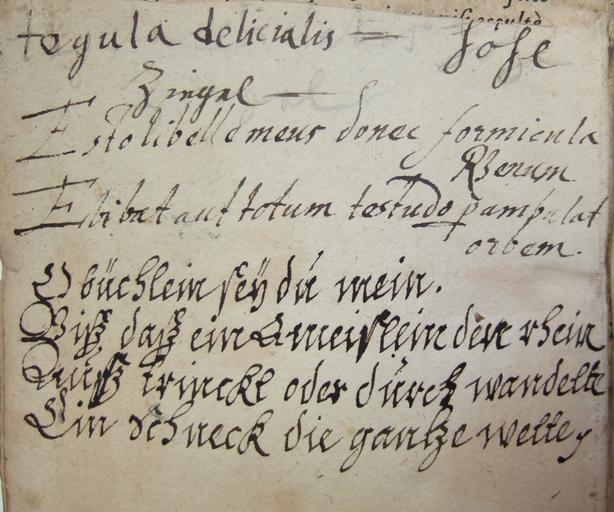 tegula delicialis — hole
Ziegel —
Esto libelle meus donec formicula
Rhenum
Ebibat aut totum testudo pampulat
orbem.
O büchlein seÿ dú mein.
Biß daß ein Ameislein den rhein
Auß trinckt oder dúrch wandelte
Ein Schneck die gantze welte,